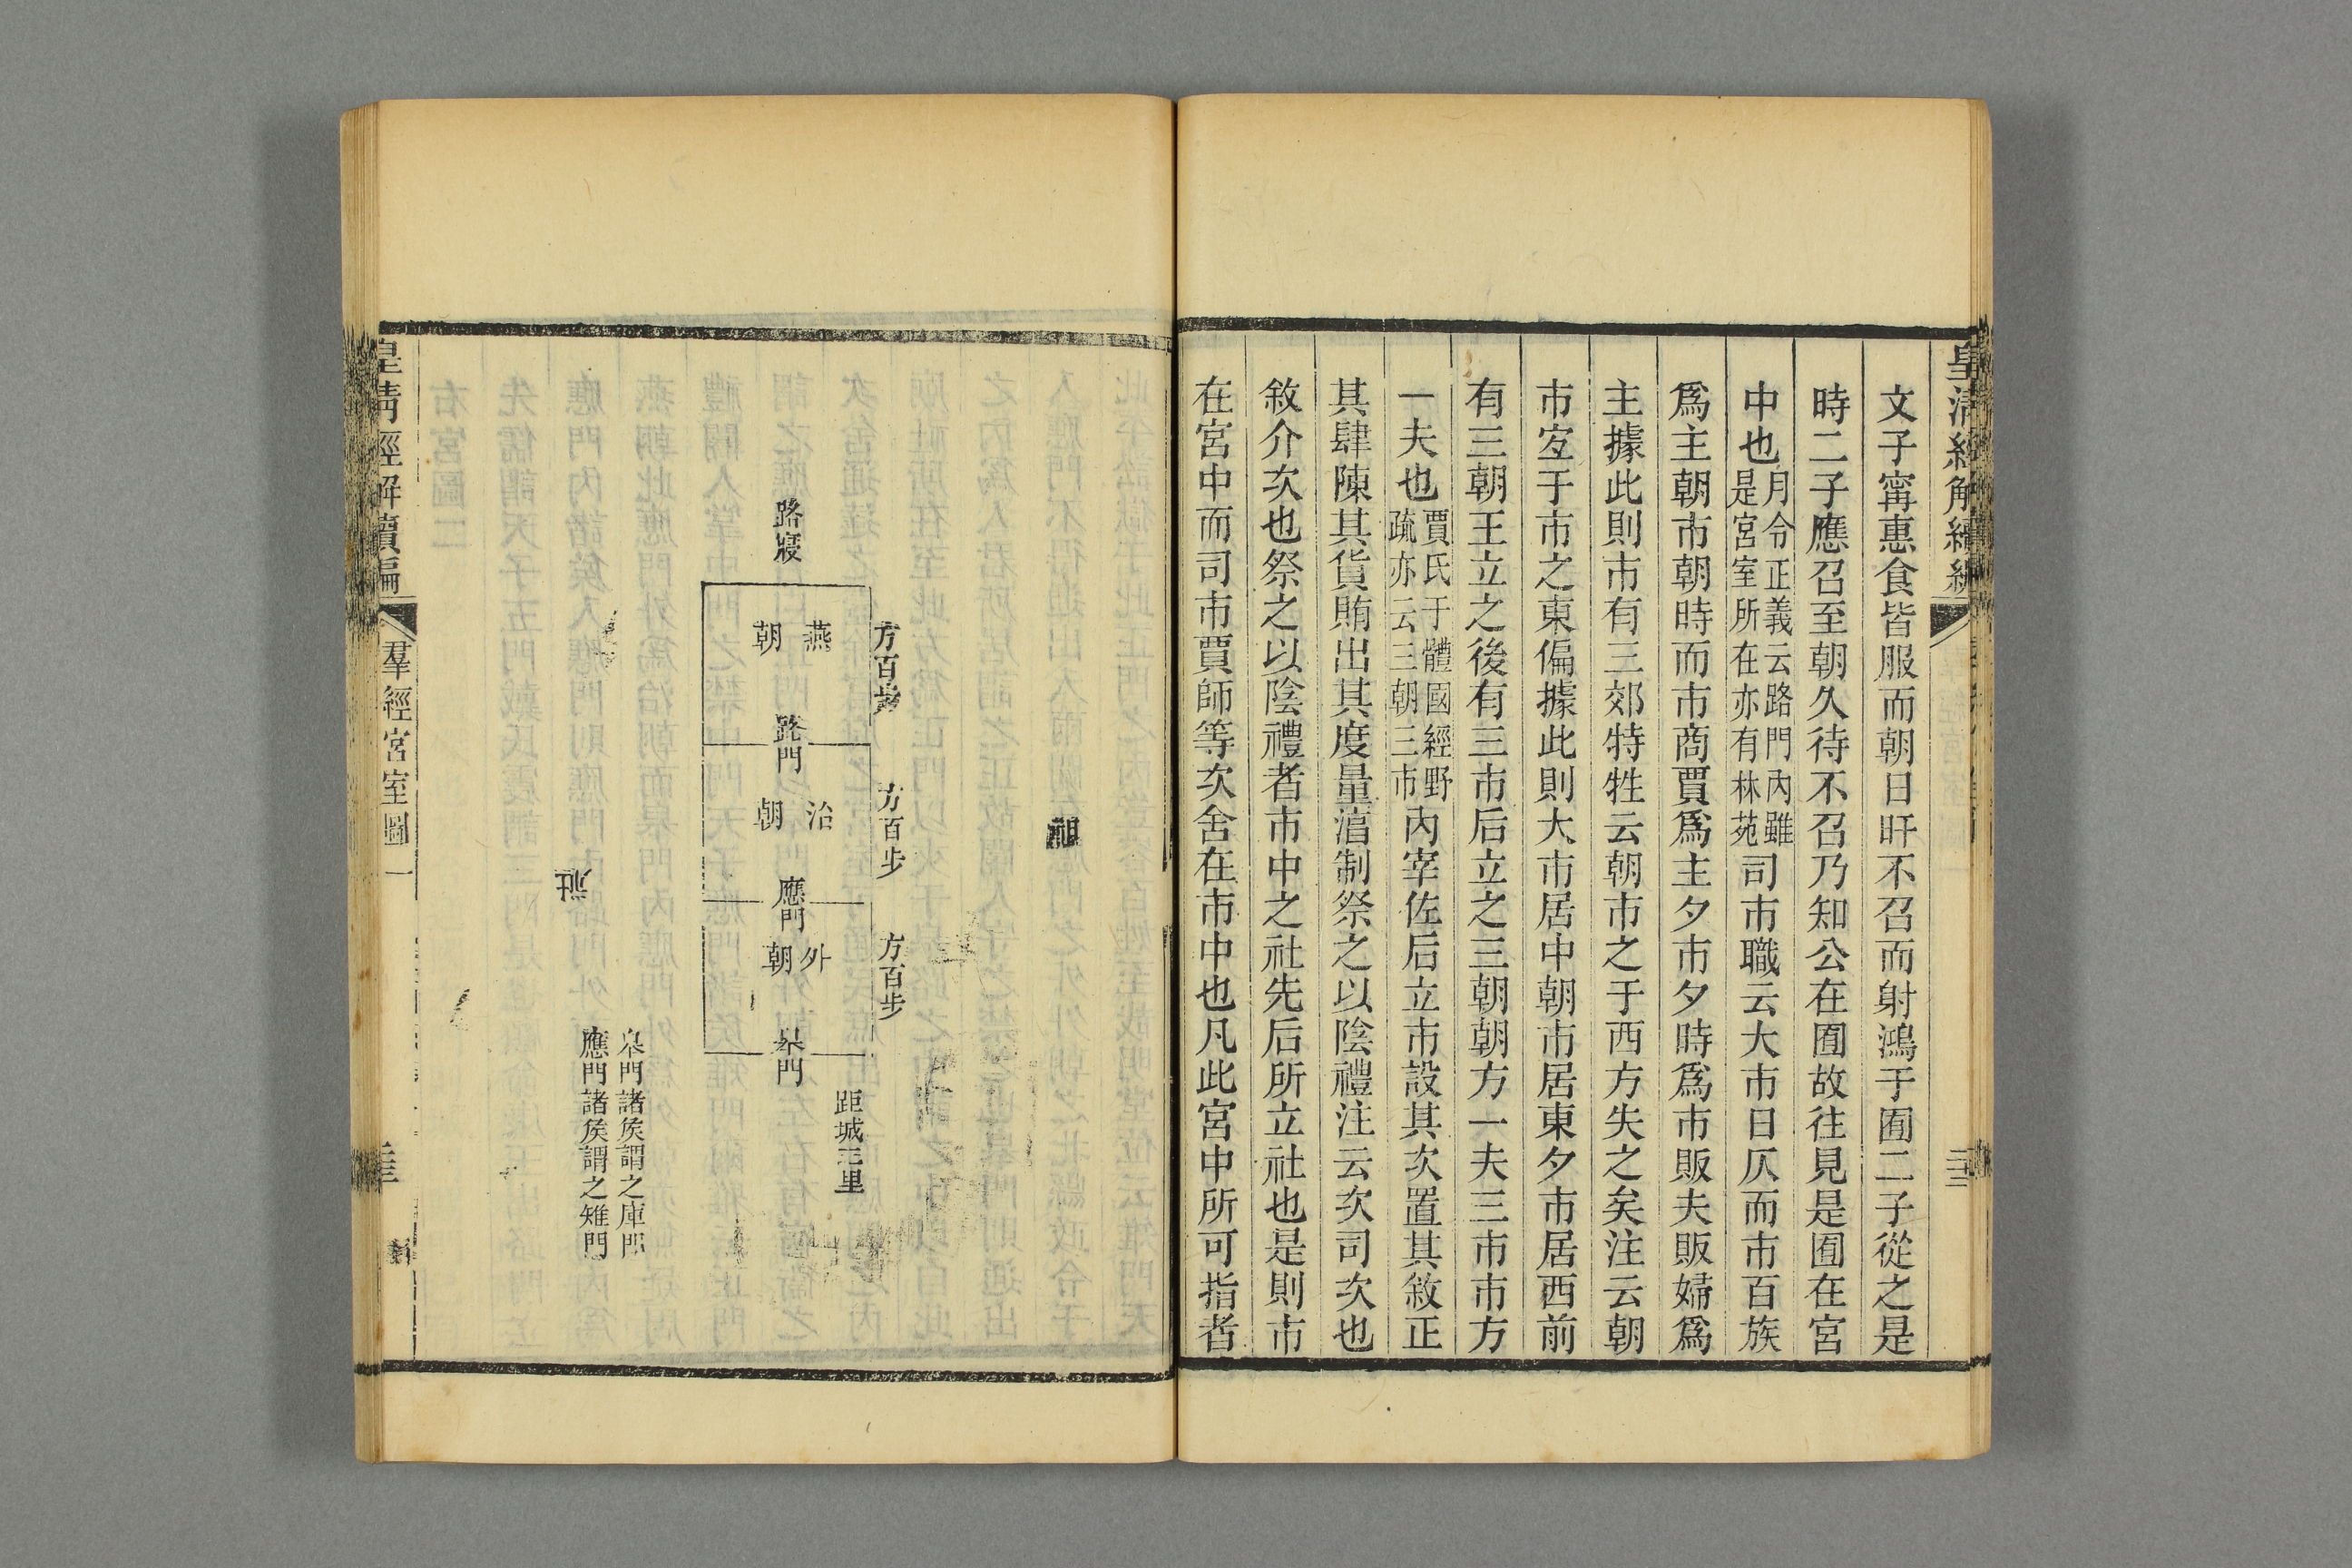 文子甯惠食皆服而朝日旰不召而射鴻于囿二子從之是
時二子應召至朝久待不召乃知公在囿故往見是囿在宮
中也月令正義云路門內雖是宮室所在亦有林苑司市職云大市日仄而市百族
爲主朝市朝時而市商賈爲主夕市夕時爲市販夫販婦爲
主據此則市有三郊特牲云朝市之于西方失之矣注云朝
市宐于市之東偏據此則大市居中朝市居東夕市居西前
有三朝王立之後有三市后立之三朝朝方一夫三市市方
一夫也賈氏于體國經野疏亦云三朝三市內宰佐后立市設其次置其敘正
其肆陳其貨賄出其度量淳制祭之以陰禮注云次司次也
敘介次也祭之以陰禮者市中之社先后所立社也是則市
在宮中而司市賈師等次舍在市中也凡此宮中所可指者
祖
方百步
方百步
方百步
路寢
燕朝
路門
治朝
應門
外朝
皋門
距城三里
社
皋門諸矦謂之庫門
應門諸矦謂之雉門
皇清經解續編
羣經宮室圖一